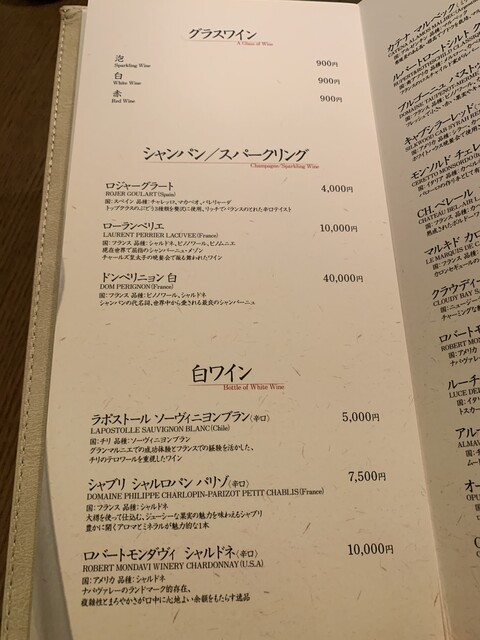 グラスワイン
A Glass of Wine
泡 900円
Sparkling Wine
白 900円
White Wine
赤 900円
Red Wine
シャンパン／スパークリング
Champagne/Sparkling Wine
ロジャーグラート 4,000円
ROJER GOULART(Spain)
国：スペイン 品種：チャレッロ、マカベオ、パレリャーダ
トップクラスのぶどう3種類を贅沢に使用。リッチでバランスのとれた辛口テイスト
ローランペリエ 10,000円
LAURENT PERRIER LACUVEE(France)
国：フランス 品種：シャルドネ、ピノノワール、ピノムニエ
現在世界で屈指のシャンパーニュ・メゾン
チャールズ皇太子の晩餐会で振る舞われたワイン
ドンペリニョン 白 40,000円
DOM PERIGNON(France)
国：フランス 品種：ピノノワール、シャルドネ
シャンパンの代名詞、世界中から愛される最良のシャンパーニュ
白ワイン
Bottle of White Wine
ラポストール ソーヴィニヨンブラン(辛口) 5,000円
LAPOSTOLLE SAUVIGNON BLANC(Chile)
国：チリ 品種：ソーヴィニヨンブラン
グランマルニエでの成功体験とフランスでの経験を活かした、
チリのテロワールを重視したワイン
シャブリ シャルロパン パリゾ(辛口) 7,500円
DOMAINE PHILIPPE CHARLOPIN-PARIZOT PETIT CHABLIS(France)
国：フランス 品種：シャルドネ
大樽を使って仕込む、ジューシーな果実の魅力を味わえるシャブリ
豊かに開くアロマとミネラルが魅力的な1本
ロバートモンダヴィ シャルドネ(辛口) 10,000円
ROBERT MONDAVI WINERY CHARDONNAY(U.S.A)
国：アメリカ 品種：シャルドネ
ナパヴァレーのランドマーク的存在、
複雑性とまろやかさが口中に心地よい余韻をもたらす逸品
カテナ マルベック
ルパートロートシルト
ブルゴーニュ パスト
キャプシーラーレッド
モンソルド チェレ
CH.ベレール
CHATEAU BELAIR
マルキ ド カロ
LE MARQUIS DE C
クラウディ
CLOUDY BAY
ロバートモ
ROBERT MON
ルーチ
LUCE DEL
アル
ALMAV
オー
OPU